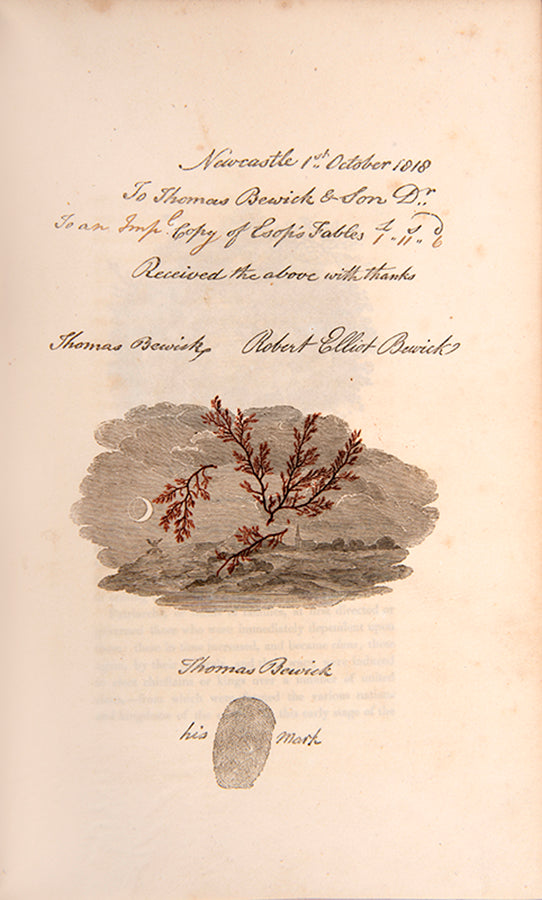 Newcastle 1st October 1818
To Thomas Bewick & Son Dr.
To an Impl Copy of Esop's Fables £ 1 " s 11 " d 6
Received the above with thanks
Thomas Bewick Robert Elliot Bewick
Thomas Bewick
his mark